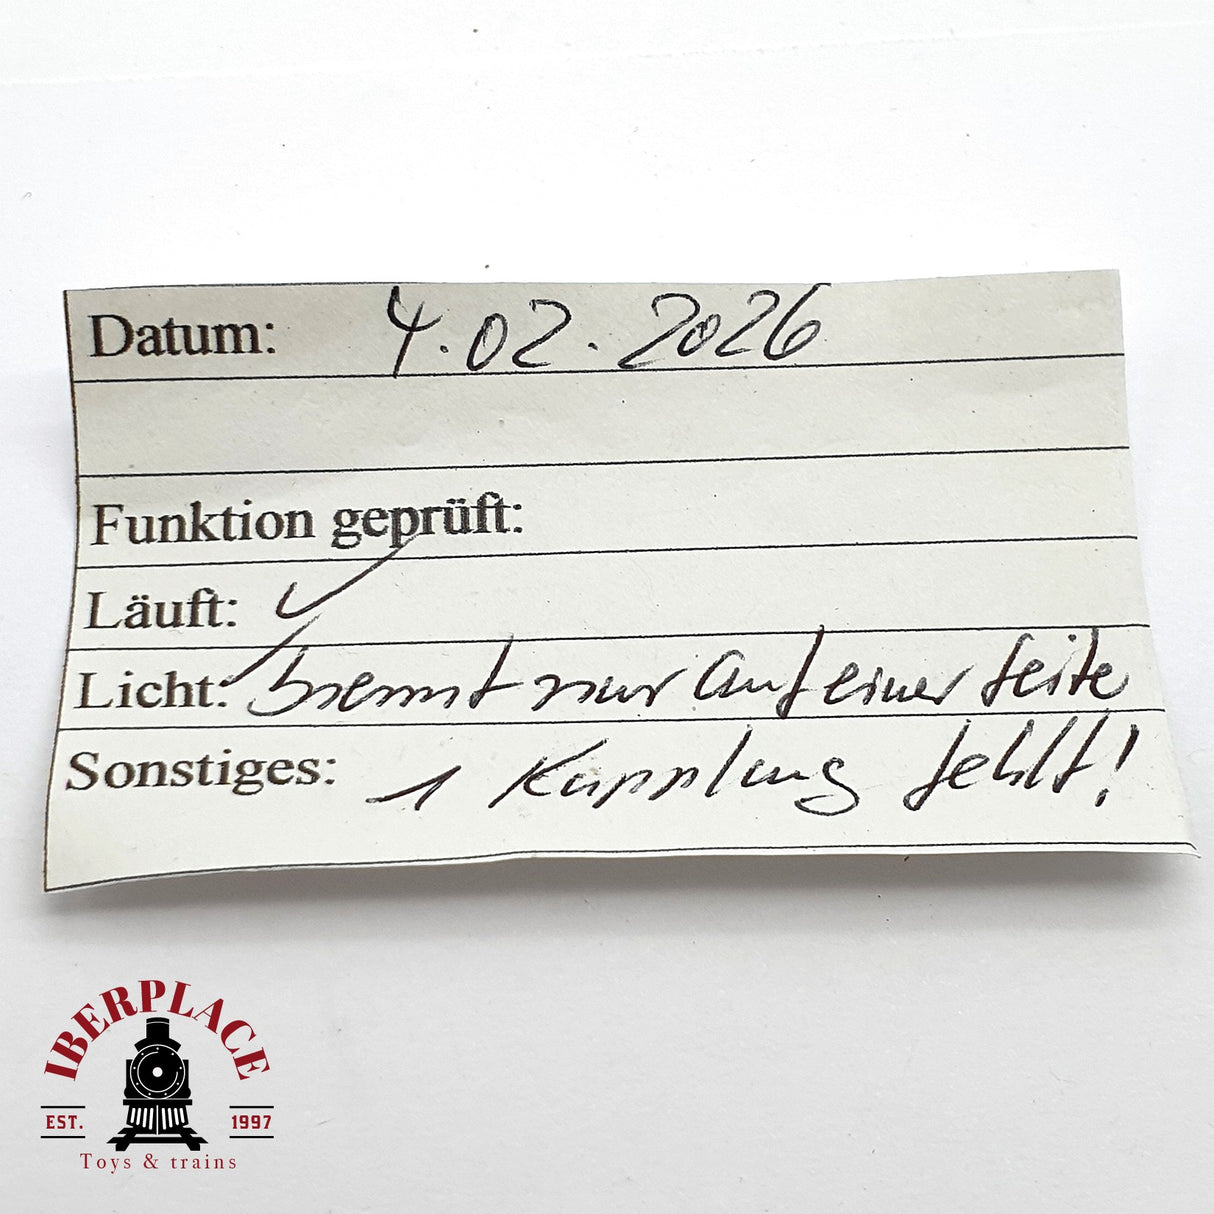 Datum: 4.02.2026
Funktion geprüft:
Läuft: ✓
Licht: ✓ brennt nur auf einer Seite
Sonstiges: 1 Kupplung fehlt!
IBERPLACE
EST. 1997
Toys & trains